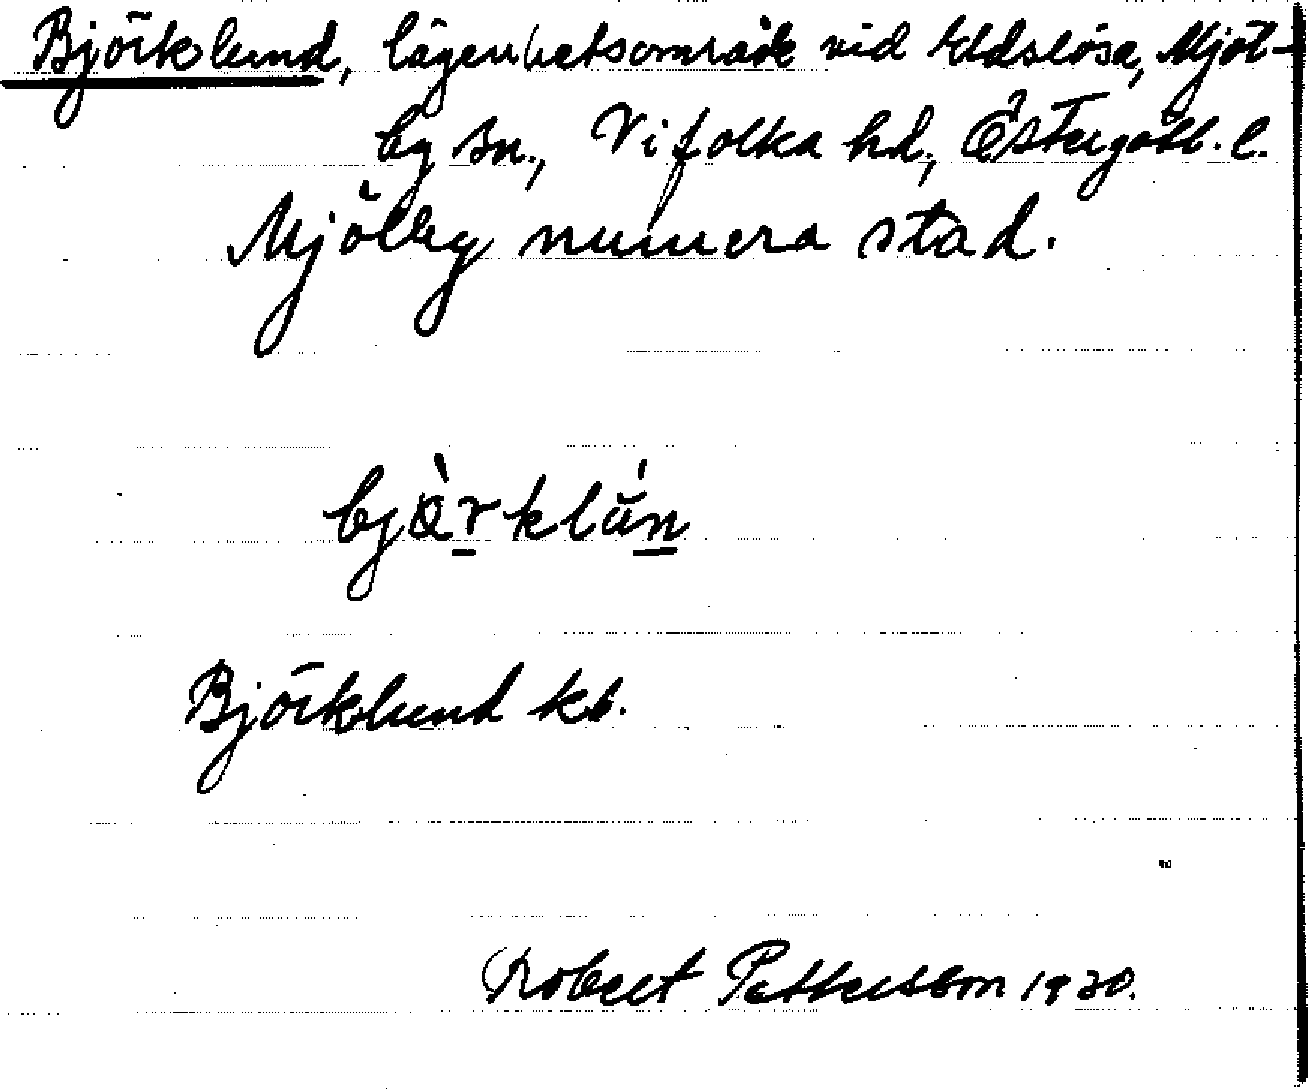 Björklund, lägenhetsområde vid Eldslösa, Mjöl-
by sn., Vifolka hd, Östergötl. l.
Mjölby numera stad.
bjö̀rklún
Björklund kb.
Robert Pettersson 1930.